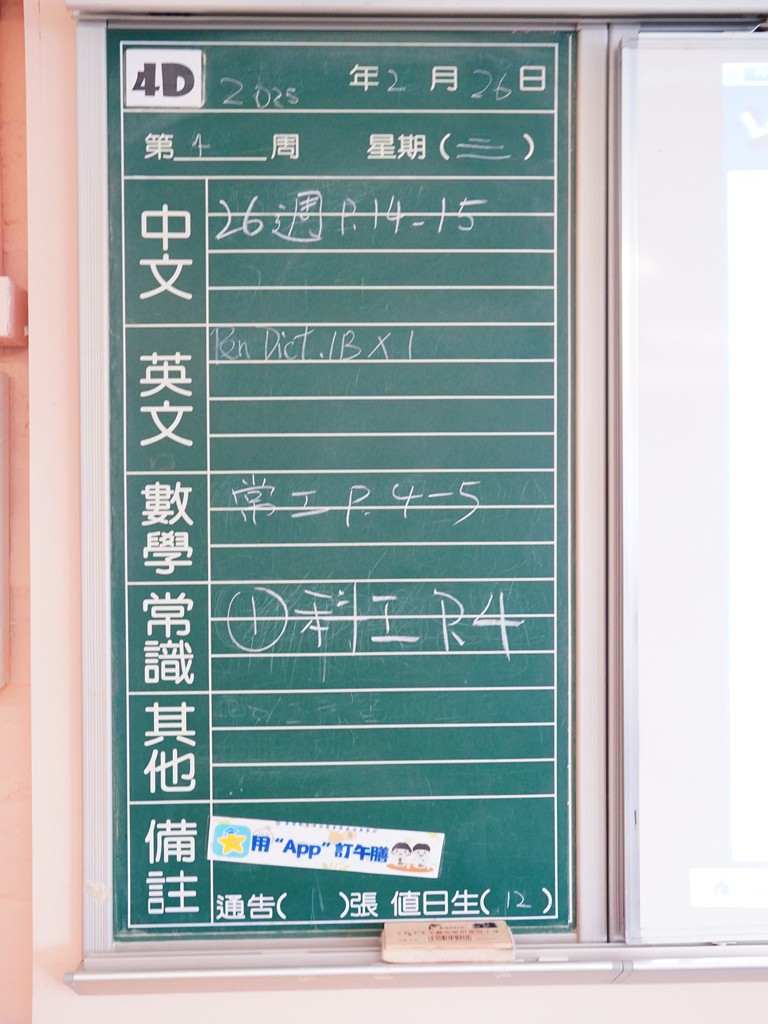 4D 2025 年2月26日
第 周 星期(三)
中文 26週 P.14-15
英文 Pen Dict. 1B X 1
數學 常工 P. 4-5
常識 ①科工 P.4
其他
備註
用“App”訂午膳
通告( 1 )張 值日生( 12 )